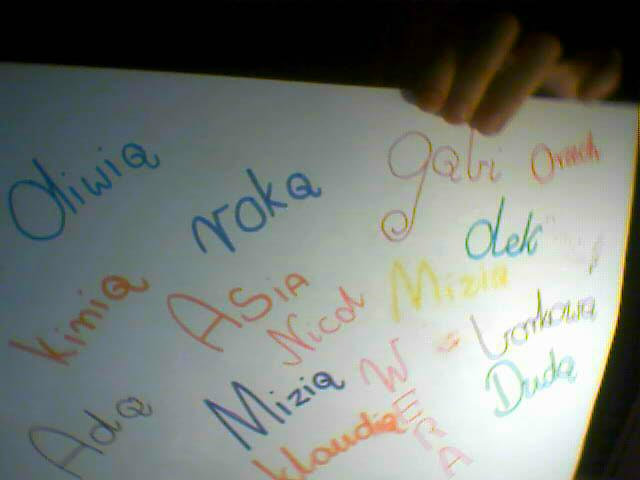 Oliwia
roka
gabi
Olek
kinia
ASIA
Nicol
Mizia
Ada
Mizia
WERA
Duda
klaudia